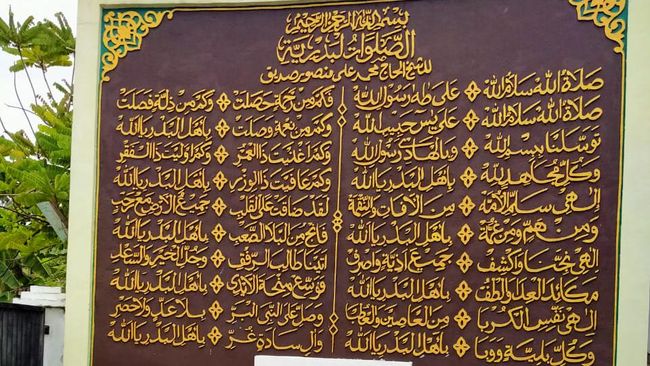 بسم الله الرحمن الرحيم
الصلوات البدرية
للشيخ الحاج محمد على منصور صديق
صلاة الله سلام الله ❖ على طه رسول الله
صلاة الله سلام الله ❖ على يس حبيب الله
توسلنا ببسم الله ❖ وبالهادى رسول الله
وكل مجاهد لله ❖ باهل البدر يا الله
الهى سلم الامة ❖ من الافات والنقمة
ومن هم ومن غمة ❖ باهل البدر يا الله
الهى نجنا واكشف ❖ جميع اذية واصرف
مكائد العدا والطف ❖ باهل البدر يا الله
الهى نفس الكربا ❖ من العاصين والعطبا
وكل بلية ووبا ❖ باهل البدر يا الله
فكم من رحمة حصلت ❖ وكم من ذلة فصلت
وكم من نعمة وصلت ❖ باهل البدر يا الله
وكم اغنيت ذا العمر ❖ وكم اوليت ذا الفقر
وكم عافيت ذا الوزر ❖ باهل البدر يا الله
لقد ضاقت على القلب ❖ جميع الارض مع رحب
فانج من البلا الصعب ❖ باهل البدر يا الله
اتينا طالب الرفق ❖ وجل الخير والسعد
فوسع منحة الايدى ❖ باهل البدر يا الله
وصل على النبى البر ❖ بلا عد ولا حصر
وال سادة غر ❖ باهل البدر يا الله